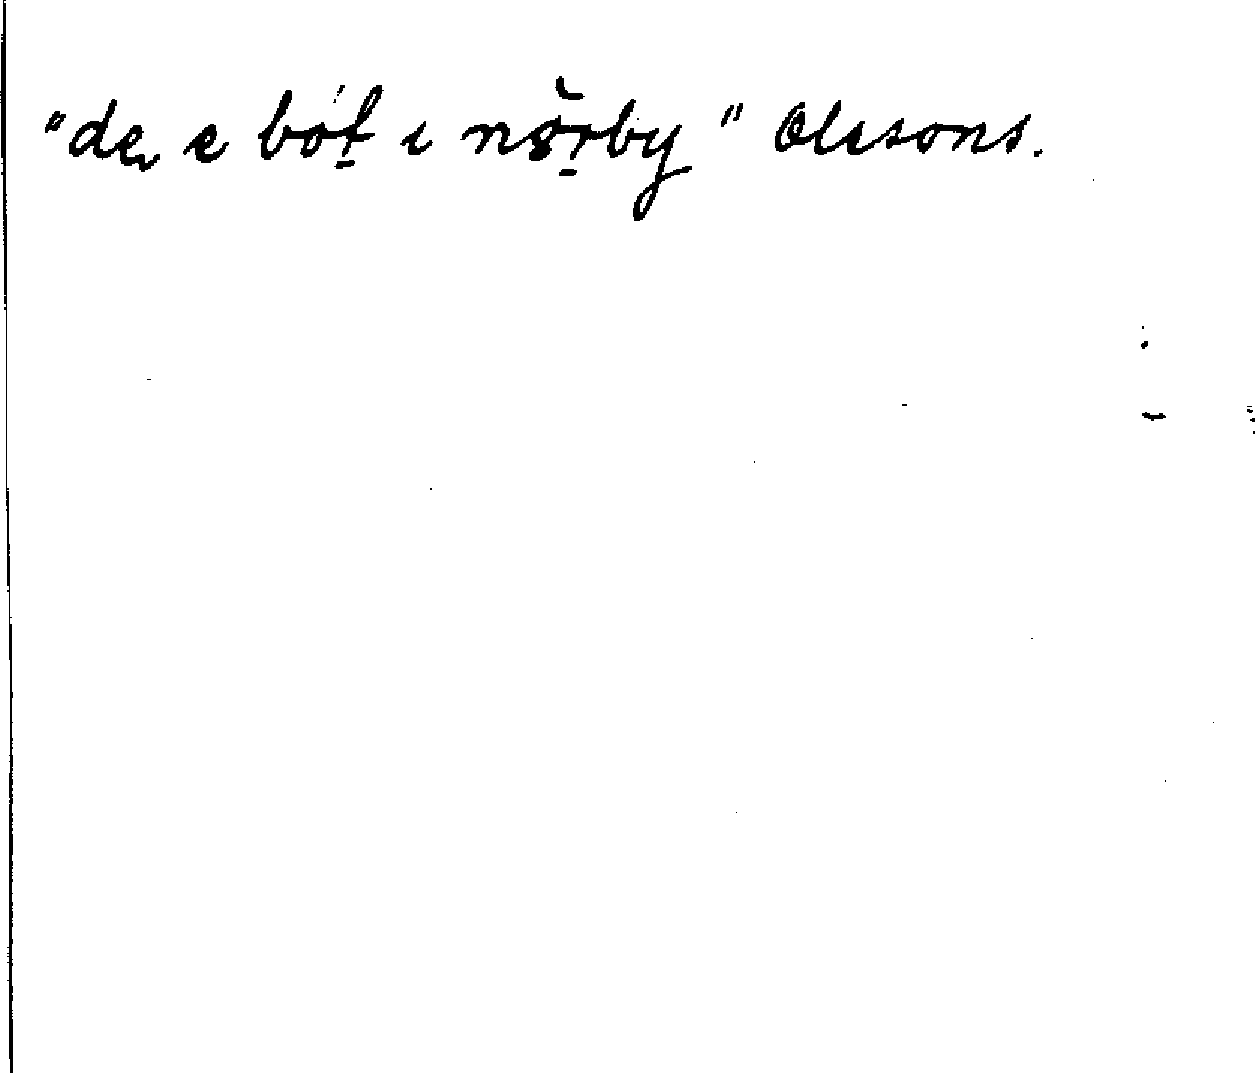 "de e bót i nörby" Olssons.